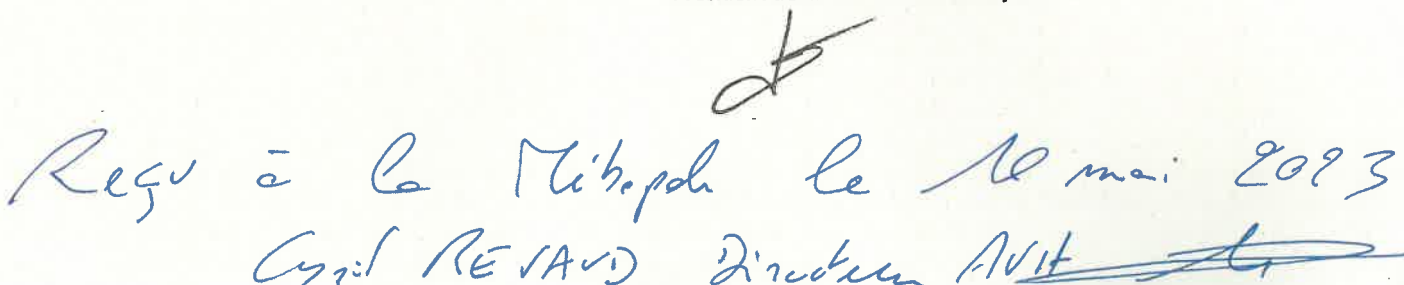 Reçu à la Métropole le 10 mai 2023
Cyril REVAUD Directeur